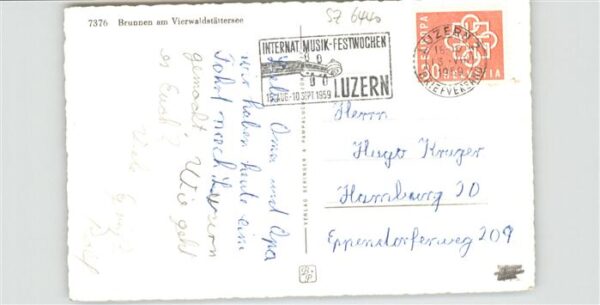 7376 Brunnen am Vierwaldstättersee
SZ 6440
INTERNAT. MUSIK-FESTWOCHEN
LUZERN
AUG.-10.SEPT.1959
LUZERN
1959
BRIEFVERSAND
EUROPA
HELVETIA
VERLAG BERINGER & PAMPALUCHI
Liebe Oma und Opa
wir haben heute eine
Fahrt nach Luzern
gemacht. Wie geht
es Euch?
Viele
Herrn
Hugo Krüger
Hamburg 20
Eppendorferweg 209